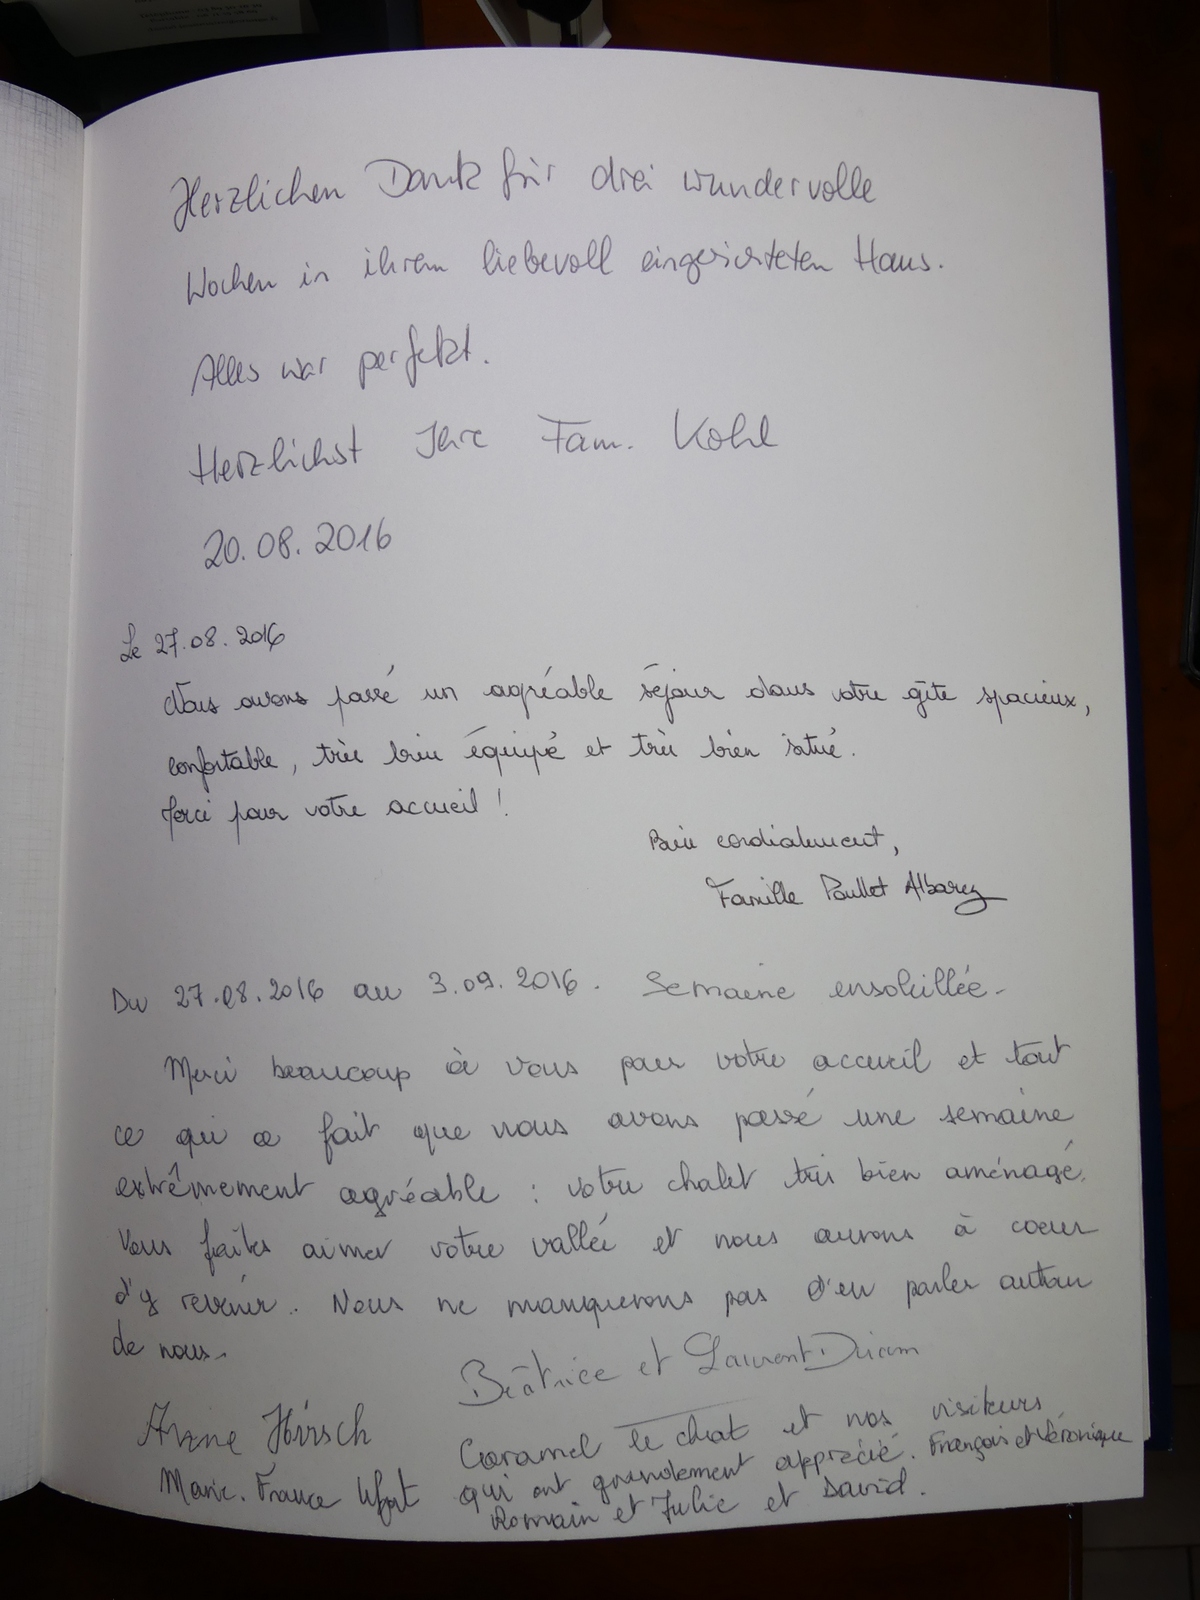 Herzlichen Dank für drei wundervolle
Wochen in ihrem liebevoll eingerichteten Haus.
Alles war perfekt.
Herzlichst Ihre Fam. Kohl
20.08.2016
Le 27.08.2016
Nous avons passé un agréable séjour dans votre gîte spacieux,
confortable, très bien équipé et très bien situé.
Merci pour votre accueil !
Bien cordialement,
Famille Poullet Albarez
Du 27.08.2016 au 3.09.2016. Semaine ensoleillée.
Merci beaucoup à vous pour votre accueil et tout
ce qui a fait que nous avons passé une semaine
extrêmement agréable : votre chalet très bien aménagé.
Vous faites aimer votre vallée et nous aurons à coeur
d'y revenir. Nous ne manquerons pas d'en parler autour
de nous.
Béatrice et Laurent
Anne Hirsch
Marie. France
Caramel le chat et nos visiteurs
qui ont grandement apprécié. François et Véronique
Romain et Julie et David.